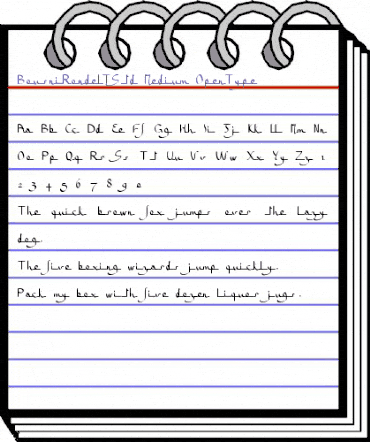 BourniRondelTStd Medium OpenType
Aa Bb Cc Dd Ee Ff Gg Hh Ii Jj Kk Ll Mm Nn
Oo Pp Qq Rr Ss Tt Uu Vv Ww Xx Yy Zz 1
2 3 4 5 6 7 8 9 0
The quick brown fox jumps over the lazy
dog.
The five boxing wizards jump quickly.
Pack my box with five dozen liquor jugs.